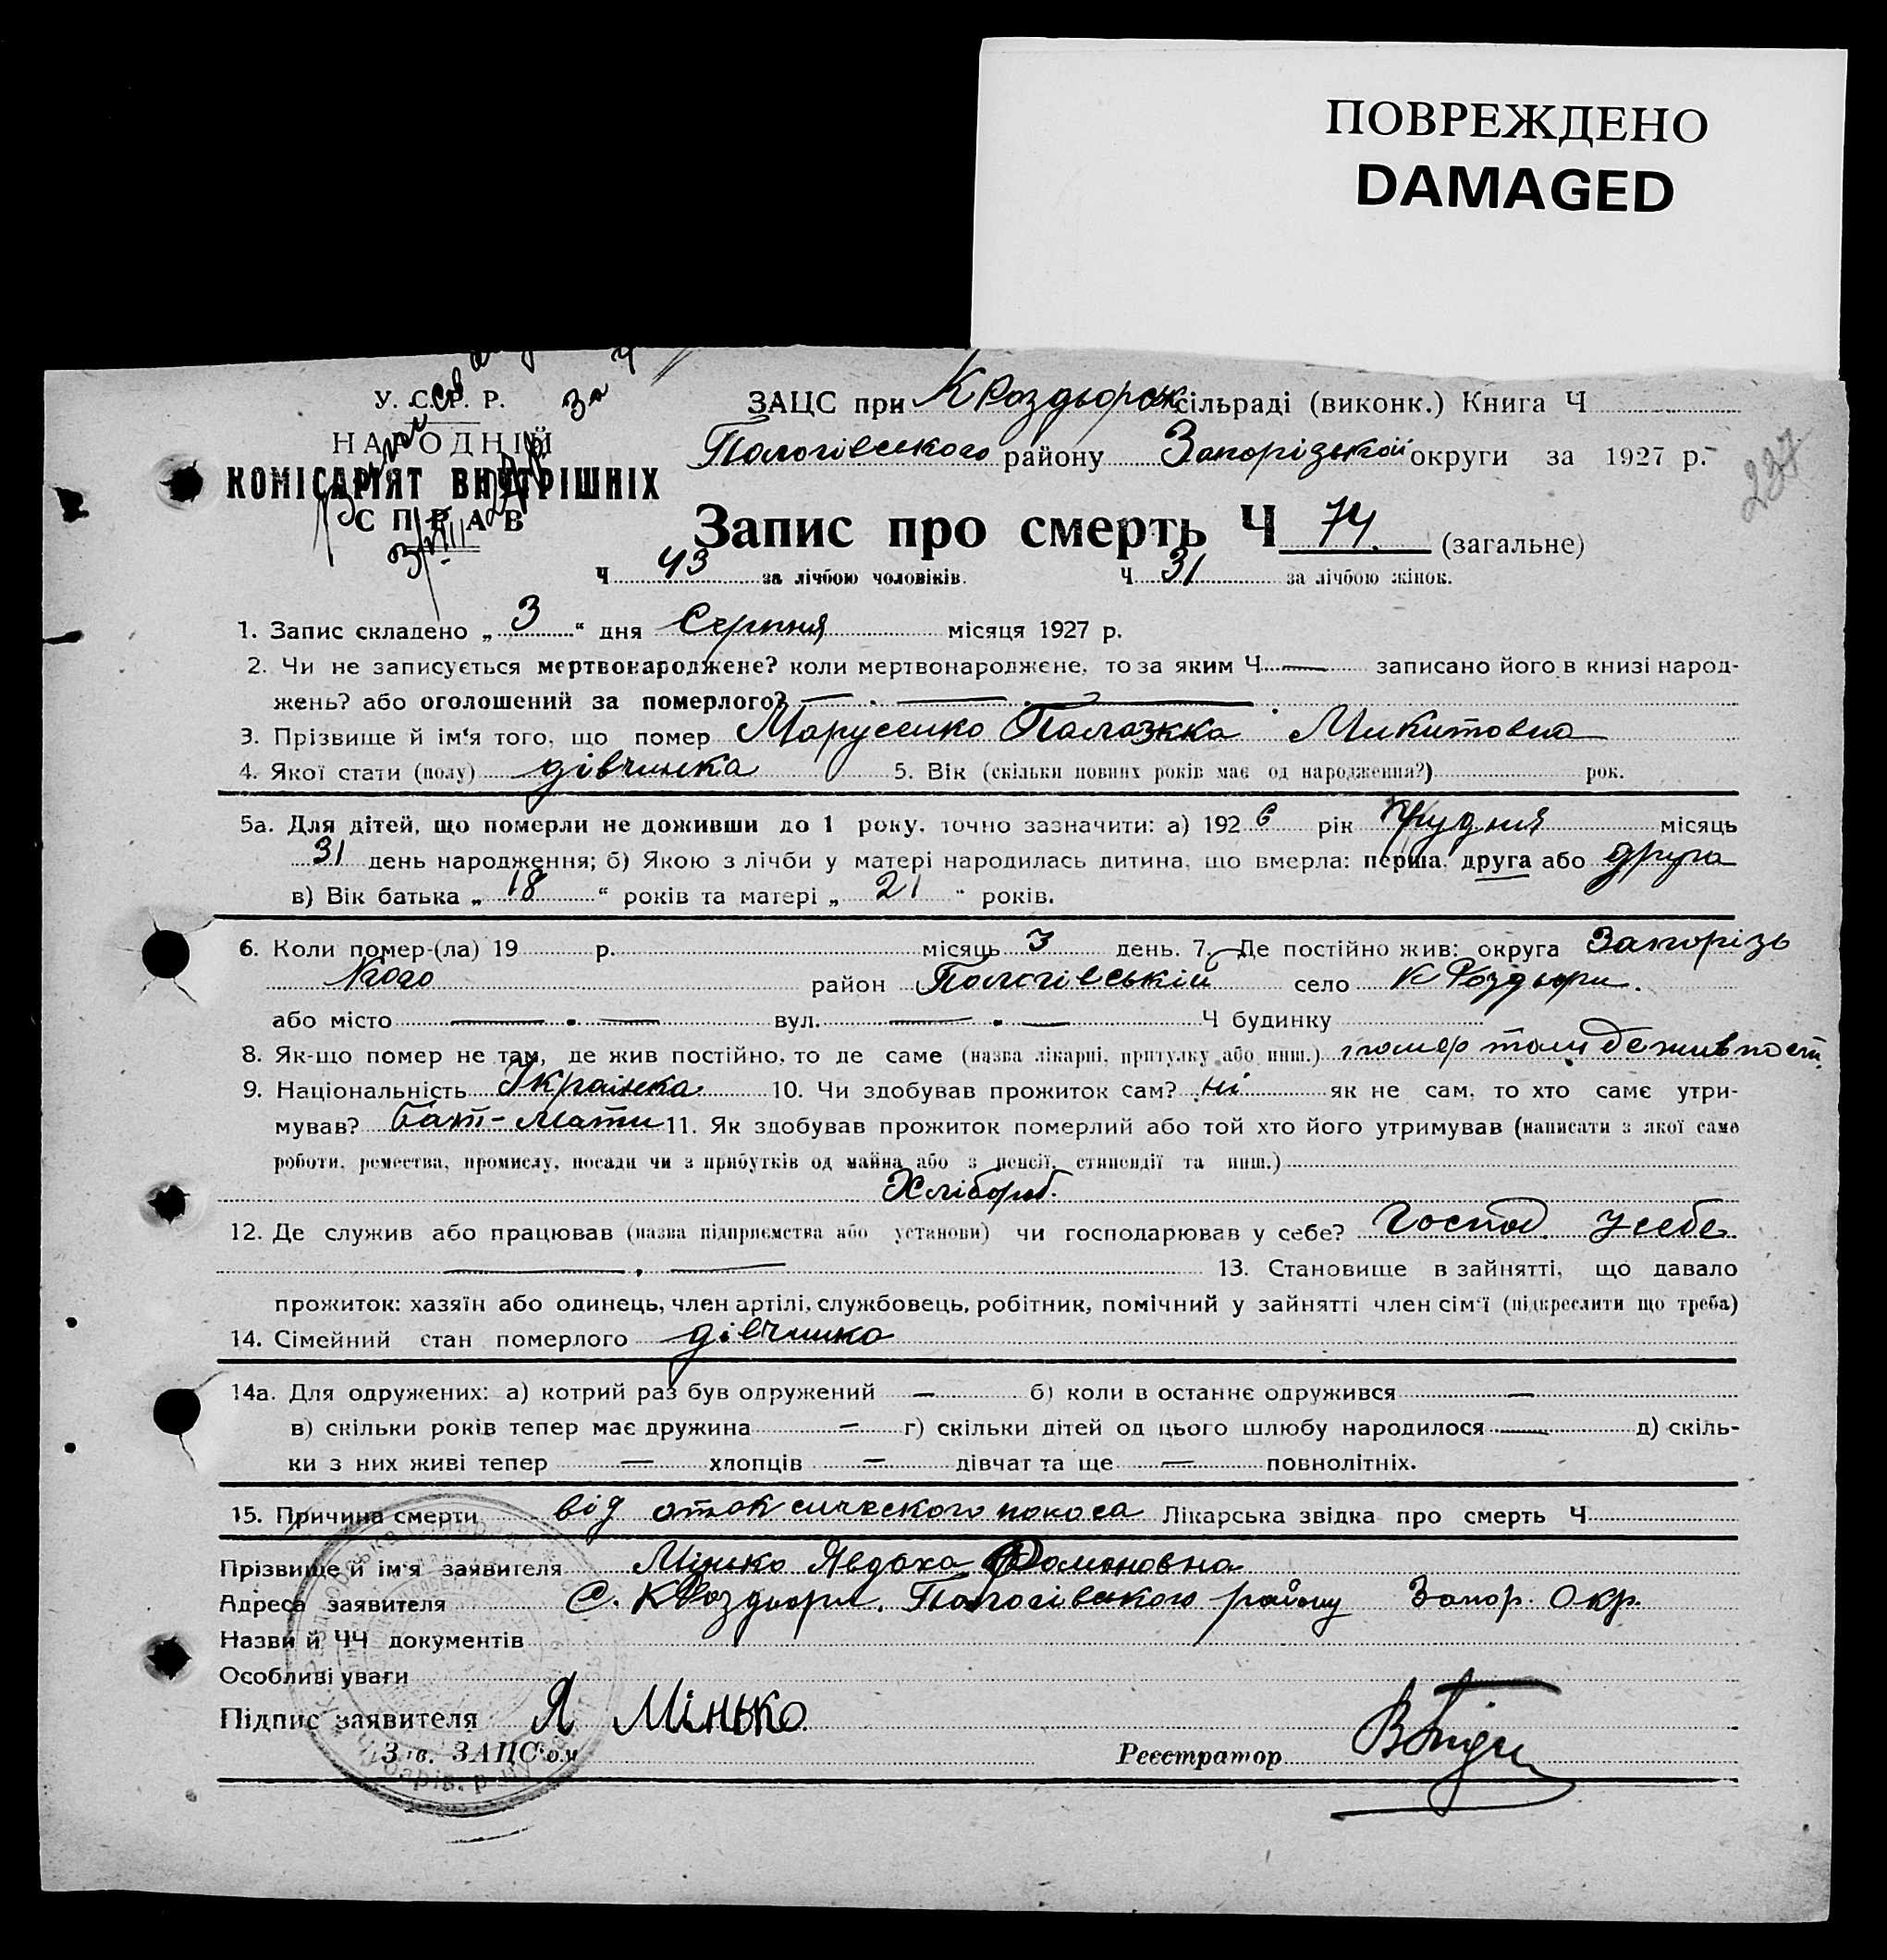 ПОВРЕЖДЕНО
DAMAGED
У. С. Р. Р.
НАРОДНІЙ
КОМІСАРІЯТ ВНУТРІШНІХ
СПРАВ
ЗАЦС при К Роздорск сільраді (виконк.) Книга Ч
Пологівського району Запорізькой округи за 1927 р.
237
Запис про смерть Ч 74. (загальне)
Ч 43 за лічбою чоловіків. Ч 31 за лічбою жінок.
1. Запис складено „ 3 “ дня Серпня місяця 1927 р.
2. Чи не записується мертвонароджене? коли мертвонароджене, то за яким Ч — записано його в книзі народ-
жень? або оголошений за померлого? — . — . —
3. Прізвище й ім'я того, що помер Марусенко Палажка Микитовна
4. Якої стати (полу) дівчинка 5. Вік (скільки повних років має од народження?) рок.
5а. Для дітей, що померли не доживши до 1 року, точно зазначити: а) 192 6 рік Грудня місяць
31 день народження; б) Якою з лічби у матері народилась дитина, що вмерла: перша, друга або друга
в) Вік батька „ 18 “ років та матері „ 21 “ років.
6. Коли помер-(ла) 19 р. місяць 3 день. 7. Де постійно жив: округа Запорізь
кого район Пологівській село К Роздори.
або місто — . — вул. — . — Ч будинку
8. Як-що помер не там, де жив постійно, то де саме (назва лікарні, притулку або инш.) помер там де жив
9. Національність Українка 10. Чи здобував прожиток сам? ні як не сам, то хто саме утри-
мував? бат-мати 11. Як здобував прожиток померлий або той хто його утримував (написати з якої саме
роботи, ремества, промислу, посади чи з прибутків од майна або з пенсії, стипендії та инш.)
Хлібороб.
12. Де служив або працював (назва підприємства або установи) чи господарював у себе? Господ. у себе
— . — 13. Становище в зайнятті, що давало
прожиток: хазяїн або одинець, член артілі, службовець, робітник, помічний у зайнятті член сім'ї (підкреслити що треба)
14. Сімейний стан померлого дівчинка
14а. Для одружених: а) котрий раз був одружений — б) коли в останнє одружився —
в) скільки років тепер має дружина — г) скільки дітей од цього шлюбу народилося — д) скіль-
ки з них живі тепер — хлопців — дівчат та ще — повнолітніх.
15. Причина смерти від поноса Лікарська звідка про смерть Ч
Прізвище й ім'я заявителя Мінько Явдоха
Адреса заявителя С. К Роздори. Пологівского району Запор. Окр.
Назви й ЧЧ документів
Особливі уваги
Підпис заявителя Я Мінько
Зав. ЗАЦС'ом Реєстратор